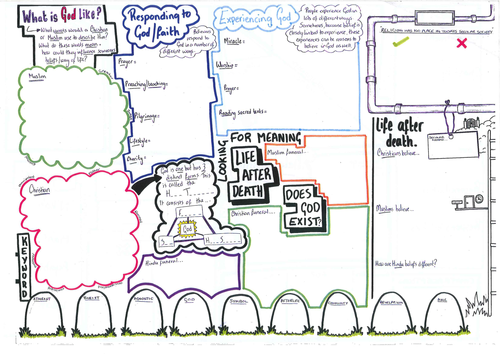 What is God Like?
What words would a Christian
or Muslim use to describe Him?
What do these words mean -
how could they influence someone's
belief/way of life?
Muslim
Christian
KEYWORD
Responding to
God/faith
Believers
respond to
God in a number of
different ways
Prayer=
Preaching/teachings=
Pilgrimage=
Lifestyle=
Charity=
God is one but has 3
distinct forms! This
is called the
H_ T_
It consists of the...
F_
God
S_
H_ S_
Hindu funeral...
Experiencing God
People experience God in
lots of different ways.
Sometimes, because belief is
closely linked to experience, these
experiences can be reasons to
believe in God as well.
Miracle=
Worship=
Prayer=
Reading sacred texts=
LOOKING
FOR MEANING
LIFE
AFTER
DEATH
DOES
GOD
EXIST?
Muslim funeral...
Christian funeral...
RELIGION HAS NO PLACE IN TODAYS SECULAR SOCIETY!
Life after
death.
Christians believe...
Muslims believe...
How are Hindu beliefs different?
ATHEIST
AGNOSTIC
GOD
SYMBOL
AFTERLIFE
COMMUNITY
REVELATION
SOUL